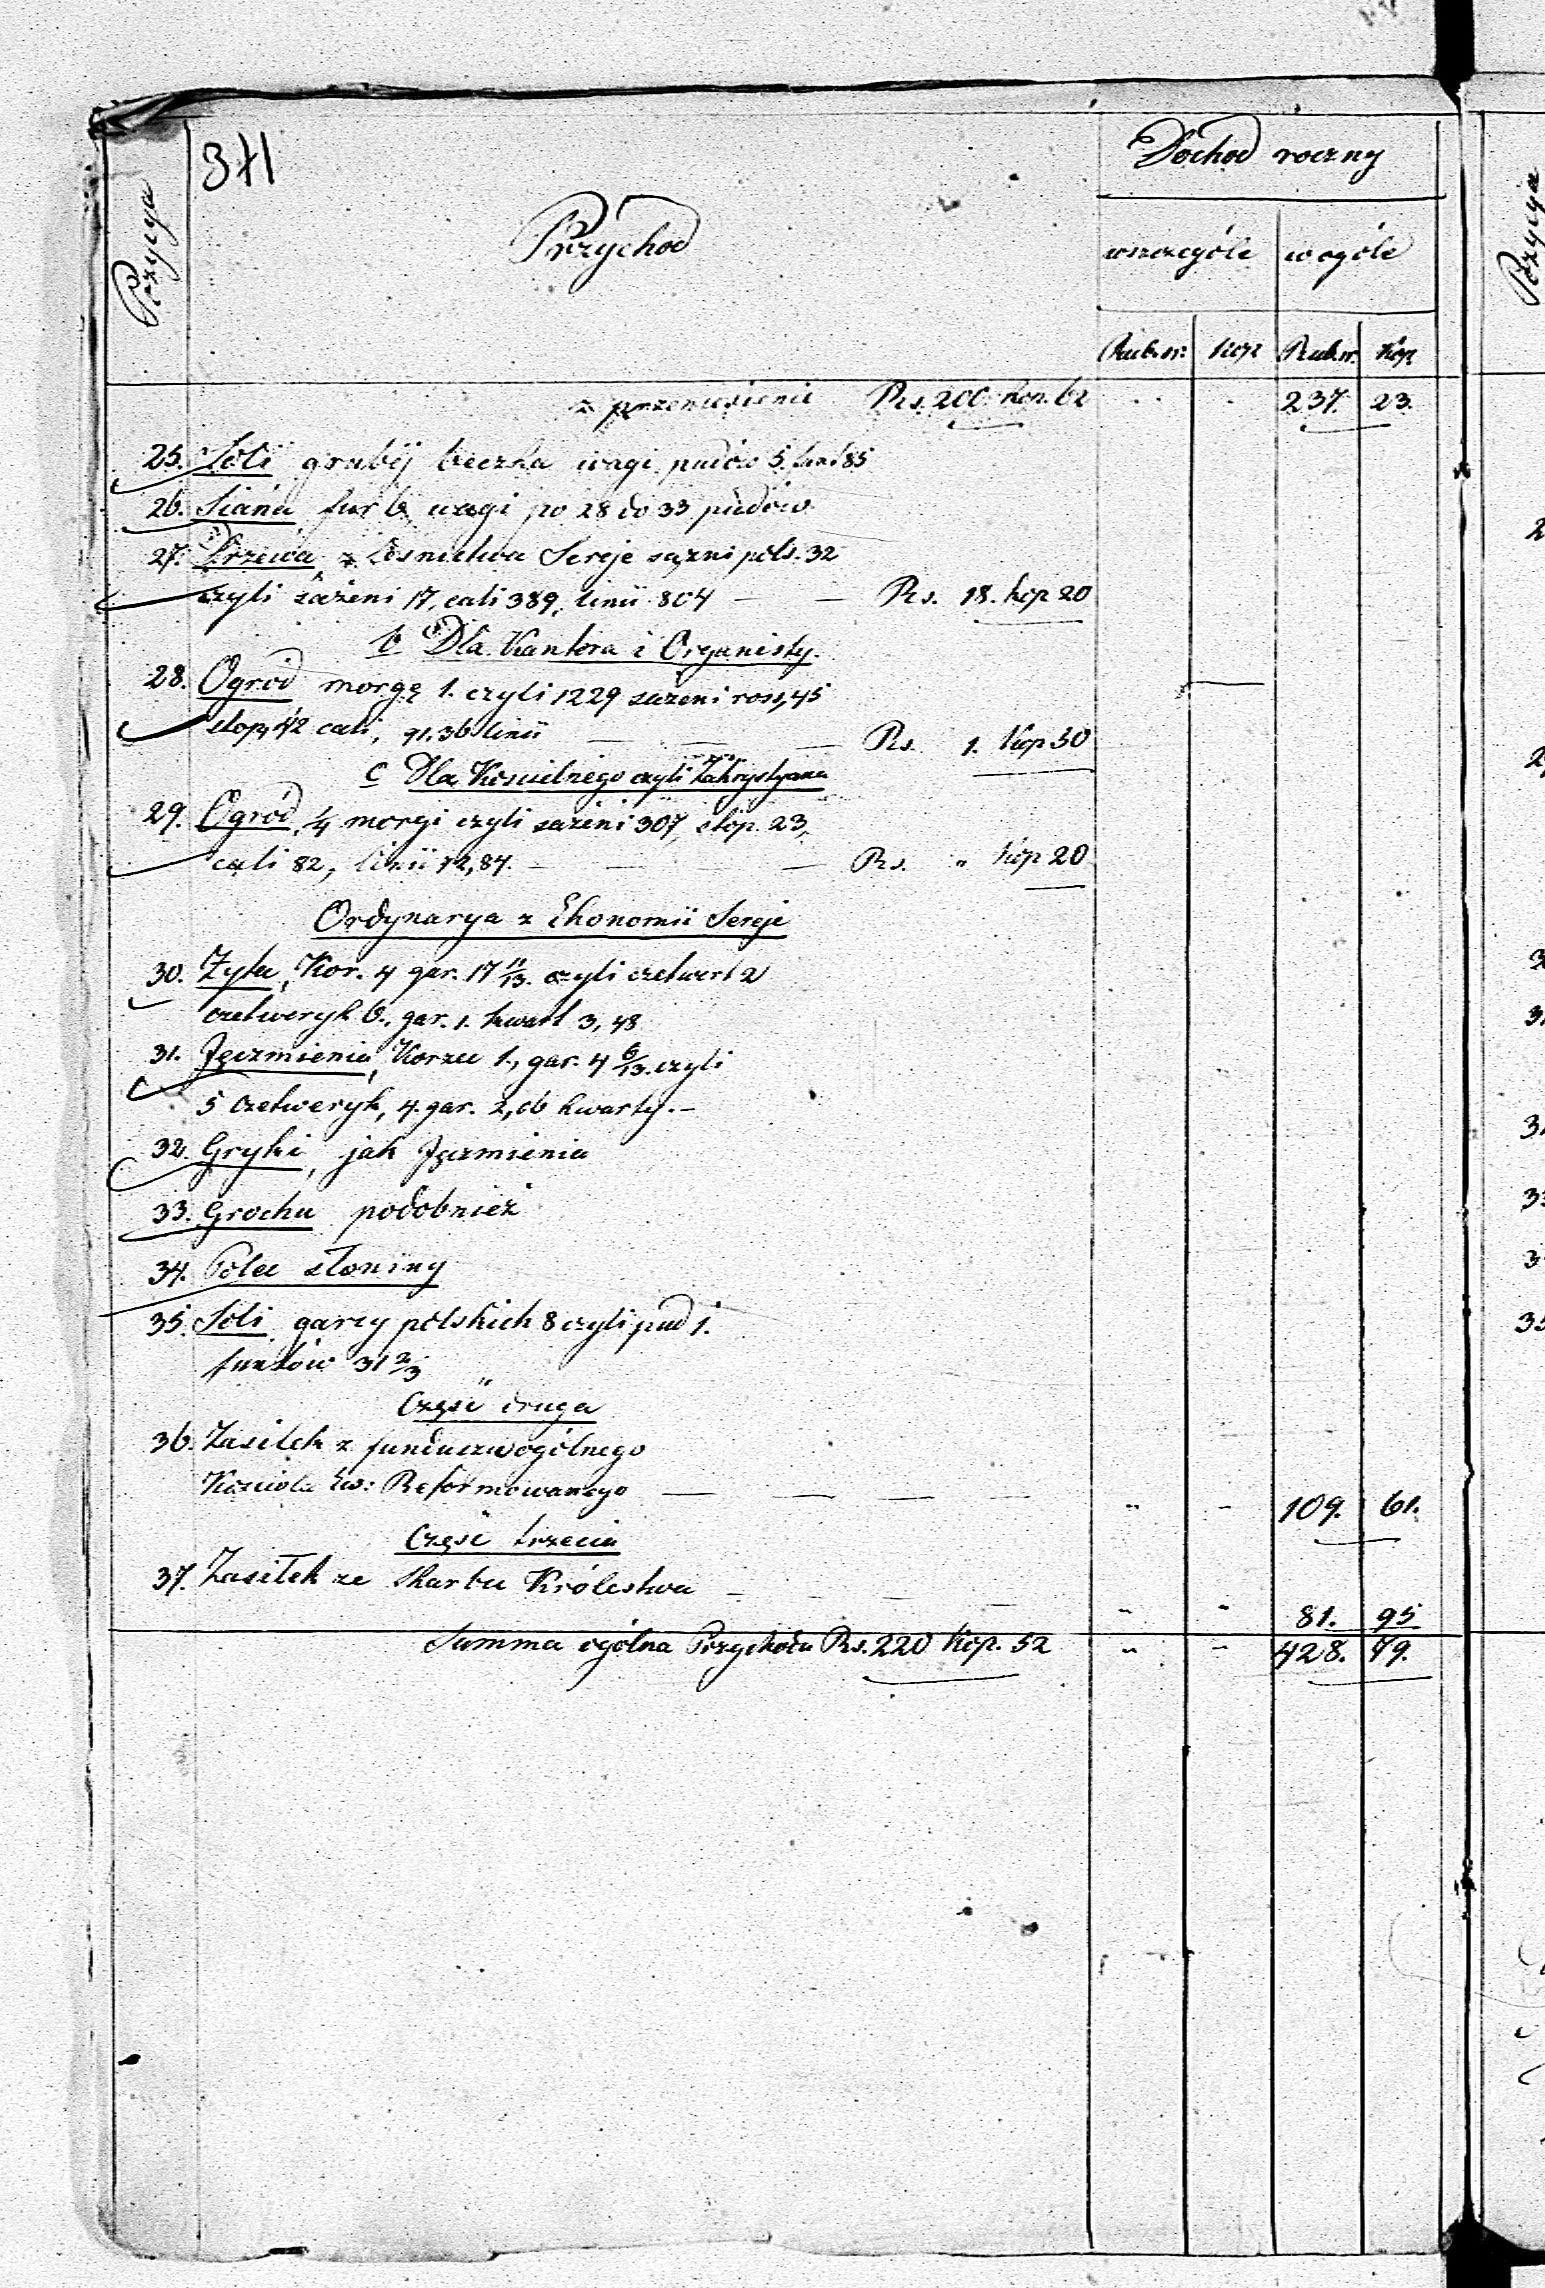 341
Pozycya
Przychod
Dochod roczny
wszczególe w ogóle
Rub.sr. Kop Rub.sr. Kop
z przeniesienia Rs. 200 kop. 62 237. 23.
25. Soli grubéj beczka wagi pudów 5. funt 85
26. Siana fur 6, wagi po 28 do 33 pudów
27. Drzewa, z Leśnictwa Sereje sązni pols. 32
czyli sążeni 17, cali 389, linii 804 — — Rs. 18. kop 20
b Dla Kantora i Organisty.
28. Ogród morgę 1. czyli 1229 sążeni ross, 45
stop, 42 cali, 91.36 linii — — — Rs. 1. Kop 50
c Dla Kościelnego czyli Zakrystyana
29. Ogród, ¼ morgi czyli sążeni 307, stop. 23,
cali 82, linii 72,84. — — — Rs. „ Kop 20
Ordynarya z Ekonomii Sereje
30. Żyta, Kor. 4 gar. 17 11/13. czyli czetwert 2
czetweryk 6., gar. 1. kwart 3, 48
31. Jęczmienia, Korzec 1., gar. 4 6/13. czyli
5 czetweryk, 4. gar. 2, 06 kwarty. —
32. Gryki, jak Jęczmienia
33. Grochu podobnież
34. Połeć słoniny
35. Soli garcy polskich 8 czyli pud 1.
funtów 31 2/3
Część druga
36. Zasiłek z funduszu ogólnego
Kościoła Ew: Reformowanego — — — — — „ „ 109. 61.
Część trzecia
37. Zasiłek ze Skarbu Królestwa — — — — „ „ 81. 95
Summa ogólna Przychodu Rs. 220 Kop. 52 „ „ 428. 79.